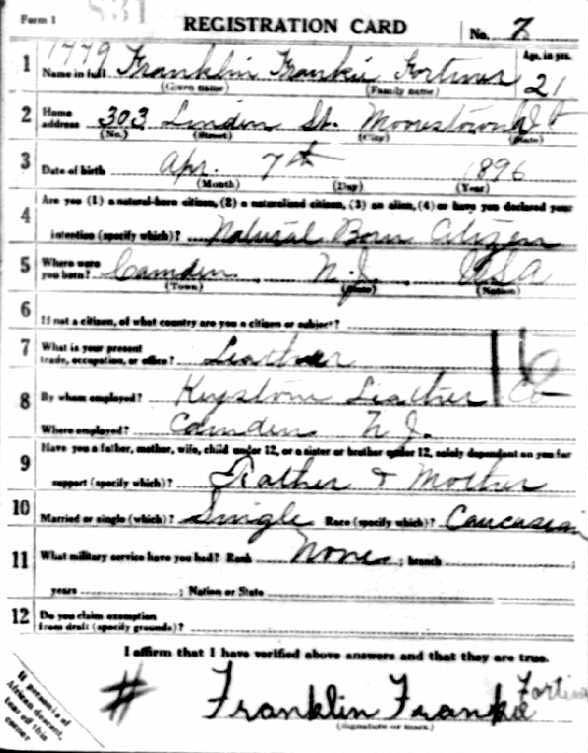 Form 1 REGISTRATION CARD No. 7
1779 Age, in yrs.
1 Name in full Franklin Frankie Fortiner 21
(Given name) (Family name)
2 Home address 303 Linden St. Moorestown
(No.) (Street) (City) (State)
3 Date of birth Apr. 7th 1896
(Month) (Day) (Year)
4 Are you (1) a natural-born citizen, (2) a naturalized citizen, (3) an alien, (4) or have you declared your
intention (specify which)? Natural Born Citizen
5 Where were you born? Camden N.J. USA
(Town) (State) (Nation)
6 If not a citizen, of what country are you a citizen or subject?
7 What is your present trade, occupation, or office? Leather 16
8 By whom employed? Keystone Leather Co
Where employed? Camden N.J.
9 Have you a father, mother, wife, child under 12, or a sister or brother under 12, solely dependent on you for
support (specify which)? Father & Mother
10 Married or single (which)? Single Race (specify which)? Caucasian
11 What military service have you had? Rank None ; branch
years ; Nation or State
12 Do you claim exemption from draft (specify grounds)?
I affirm that I have verified above answers and that they are true.
# Franklin Frankie Fortiner
(Signature or mark)
If person is of
African descent,
tear off this
corner